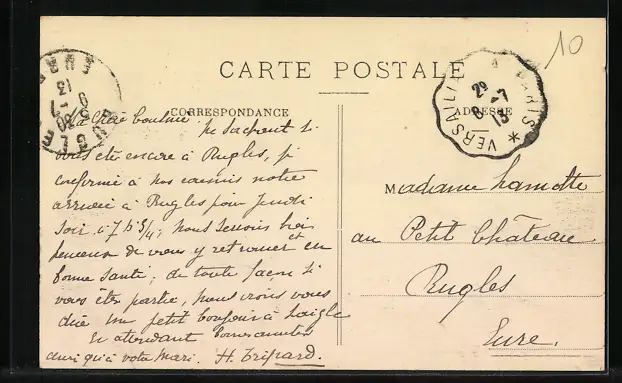 10
CARTE POSTALE
CORRESPONDANCE
ADRESSE
VERSAILL A PARIS *
29 -7
13
RUGLES
EURE
Ma Chère Cousine ne sachant si
vous êtes encore à Rugles, je
confirme à nos cousins notre
arrivée à Rugles pour jeudi
soir à 7h 3/4; nous serons bien
heureux de vous y retrouver en
bonne santé; de toute façon si
vous êtes partie, nous irons vous
dire un petit bonjour à Laigle
En attendant bonne santé
ainsi qu'à votre Mari. H. Tripard.
Madame Lamotte
au Petit Château.
Rugles
Eure.